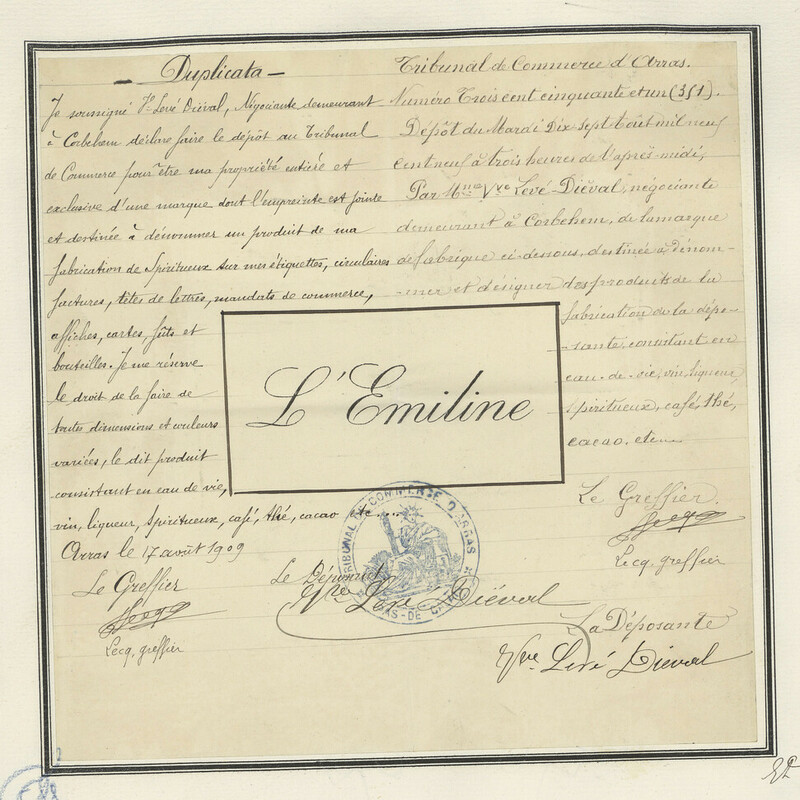 Duplicata
Je soussigné Vve Levé Diéval, Négociante demeurant
à Corbehem déclare faire le dépôt au Tribunal
de Commerce pour être ma propriété entière et
exclusive d'une marque dont l'empreinte est jointe
et destinée à dénommer un produit de ma
fabrication de Spiritueux sur mes étiquettes, circulaires
factures, têtes de lettres, mandats de commerce,
affiches, cartes, fûts et
bouteilles. Je me réserve
le droit de la faire de
toutes dimensions et couleurs
variées, le dit produit
consistant en eau de vie,
vin, liqueur, Spiritueux, café, thé, cacao etc...
Arras le 17 août 1909
Le Greffier
Lecq, greffier
Le Déposant
Vve Levé Diéval
Tribunal de Commerce d'Arras.
Numéro Trois cent cinquante et un (351).
Dépôt du Mardi Dix-Sept Août mil neuf
cent neuf à trois heures de l'après-midi,
Par Mme Vve Levé Diéval, négociante
demeurant à Corbehem, de la marque
de fabrique ci-dessous, destinée à dénom-
-mer et désigner des produits de la
fabrication de la dépo-
-sante, consistant en
eau-de-vie, vin, liqueur,
spiritueux, café, thé,
cacao, etc...
L'Emiline
Le Greffier.
Lecq, greffier
La Déposante
Vve Levé Diéval
TRIBUNAL DE COMMERCE D'ARRAS
PAS-DE-CALAIS